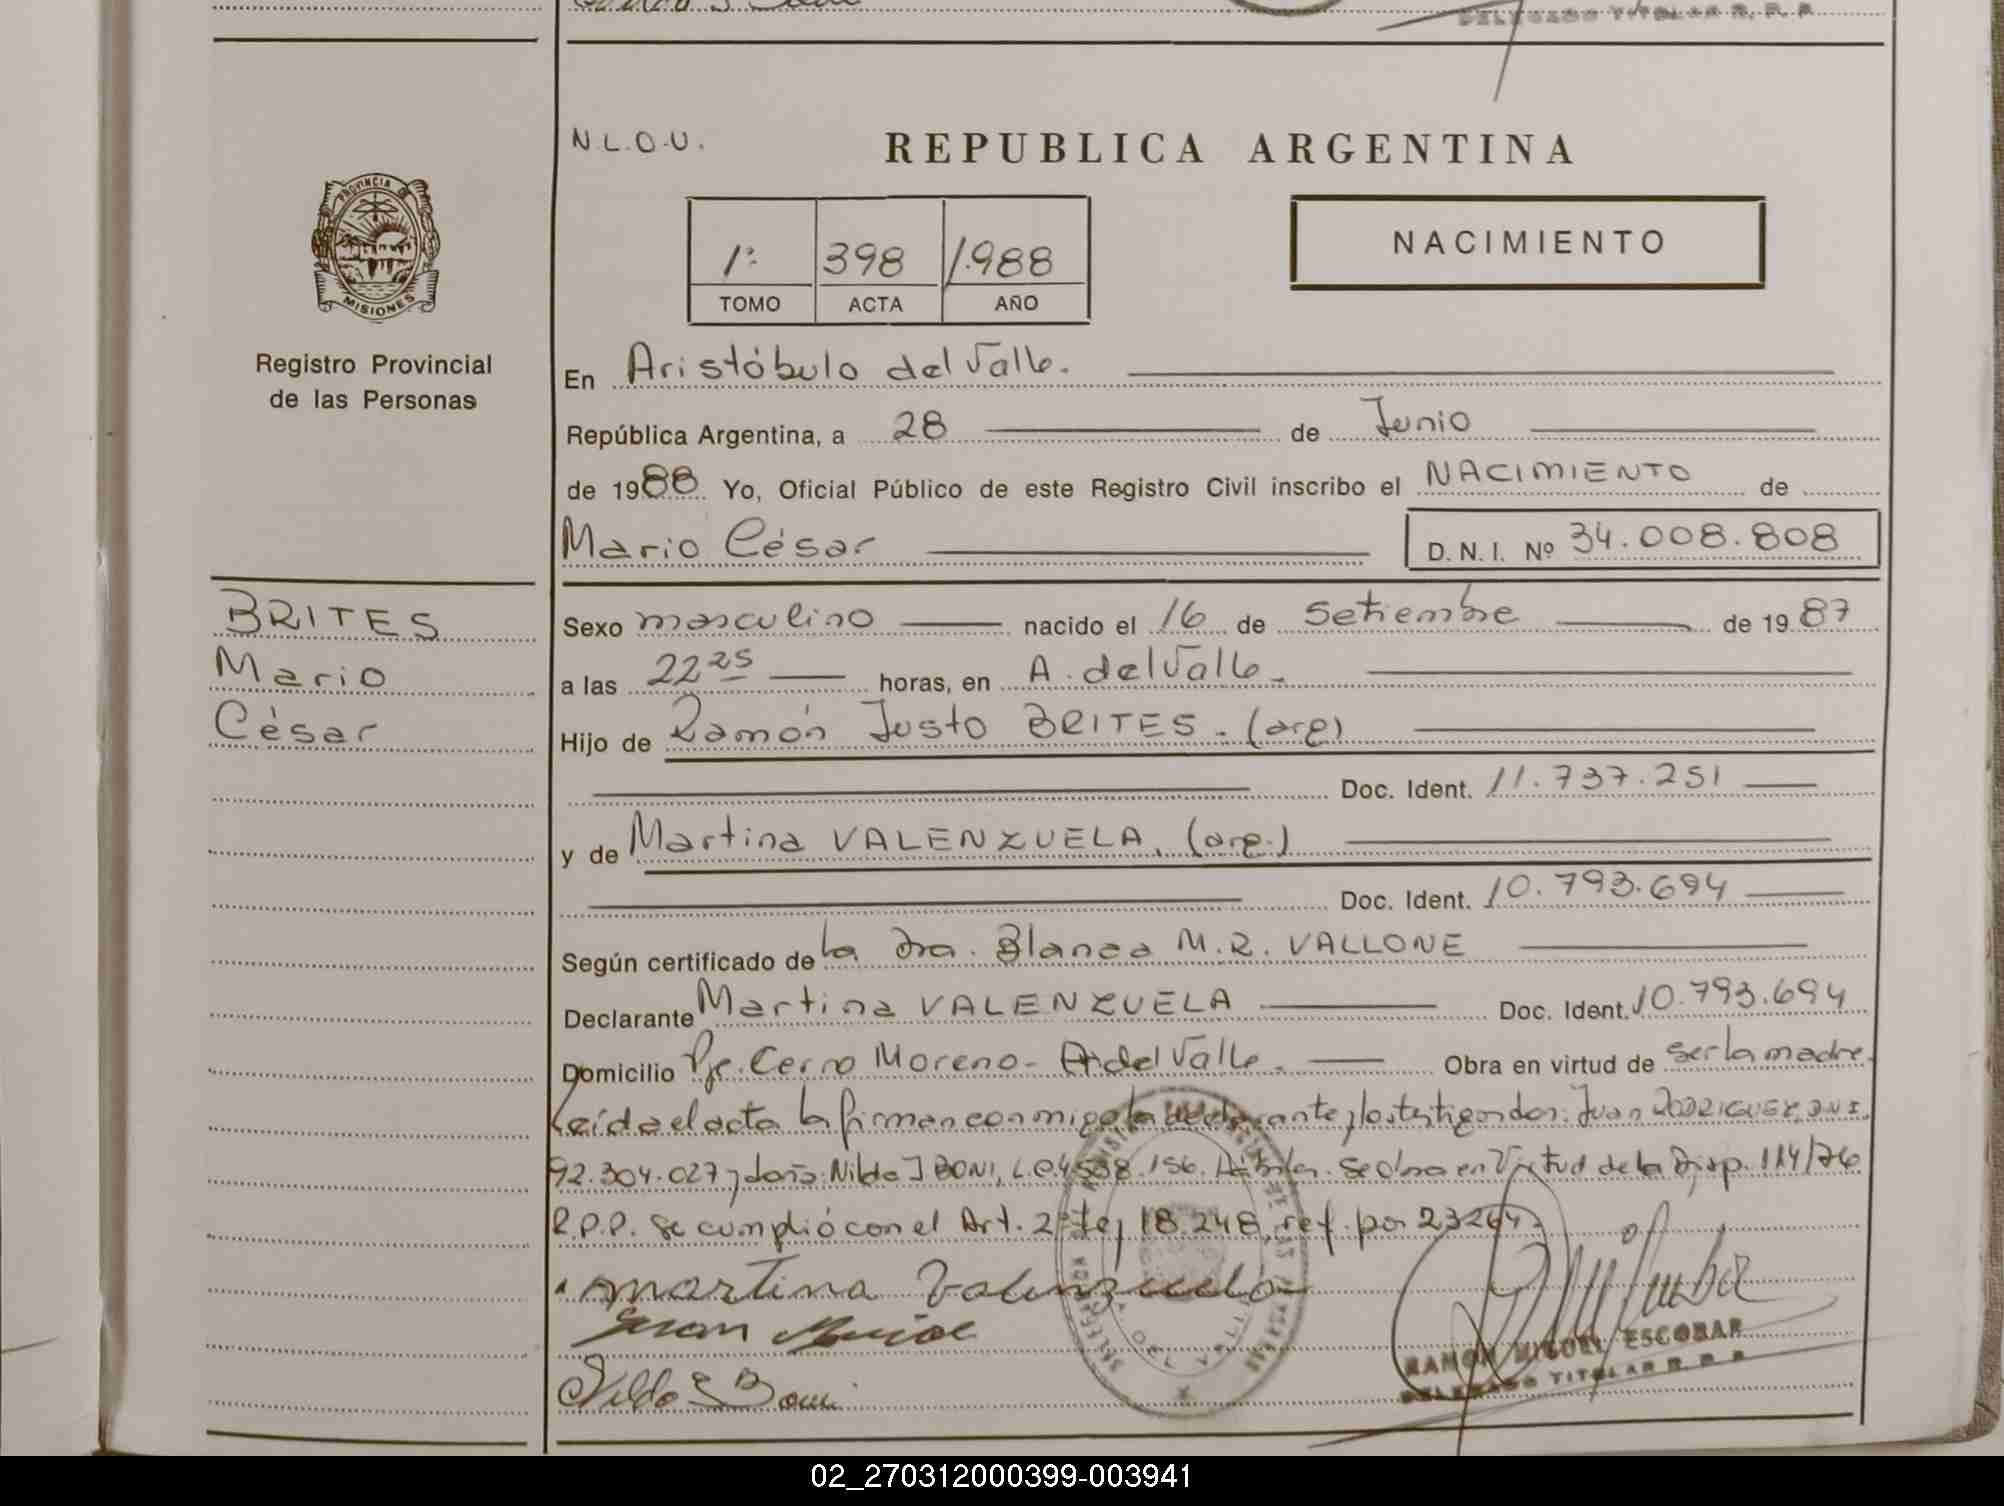 DELEGADO TITULAR R. P. P.
N.L.O.U.
REPUBLICA ARGENTINA
PROVINCIA DE
MISIONES
1º 398 1.988
TOMO ACTA AÑO
NACIMIENTO
Registro Provincial
de las Personas
En Aristóbulo del Valle.
República Argentina, a 28 de Junio
de 1988. Yo, Oficial Público de este Registro Civil inscribo el NACIMIENTO de
Mario César D. N. I. Nº 34.008.808
BRITES
Mario
César
Sexo masculino nacido el 16 de Setiembre de 1987
a las 22 25 horas, en A. del Valle.
Hijo de Ramón Justo BRITES. (arg)
Doc. Ident. 11.737.251
y de Martina VALENZUELA. (arg.)
Doc. Ident. 10.793.694
Según certificado de la Dra. Blanca M.R. VALLONE
Declarante Martina VALENZUELA Doc. Ident. 10.793.694
Domicilio Pje. Cerro Moreno - A del Valle. Obra en virtud de ser la madre.
Leída el acta la firman conmigo la declarante y los testigos don: Juan RODRIGUEZ, D.N.I.
92.304.027 y doña: Nilda J BONI, L.C. 4.508.156. Hábiles. Se obra en Virtud de la Disp. 114/76
R.P.P. Se cumplió con el Art. 2º Ley 18.248, ref. por 23264.
Martina Valenzuela
Juan
Nilda E Boni
RAMON MIGUEL ESCOBAR
DELEGADO TITULAR R. P. P.
02_270312000399-003941